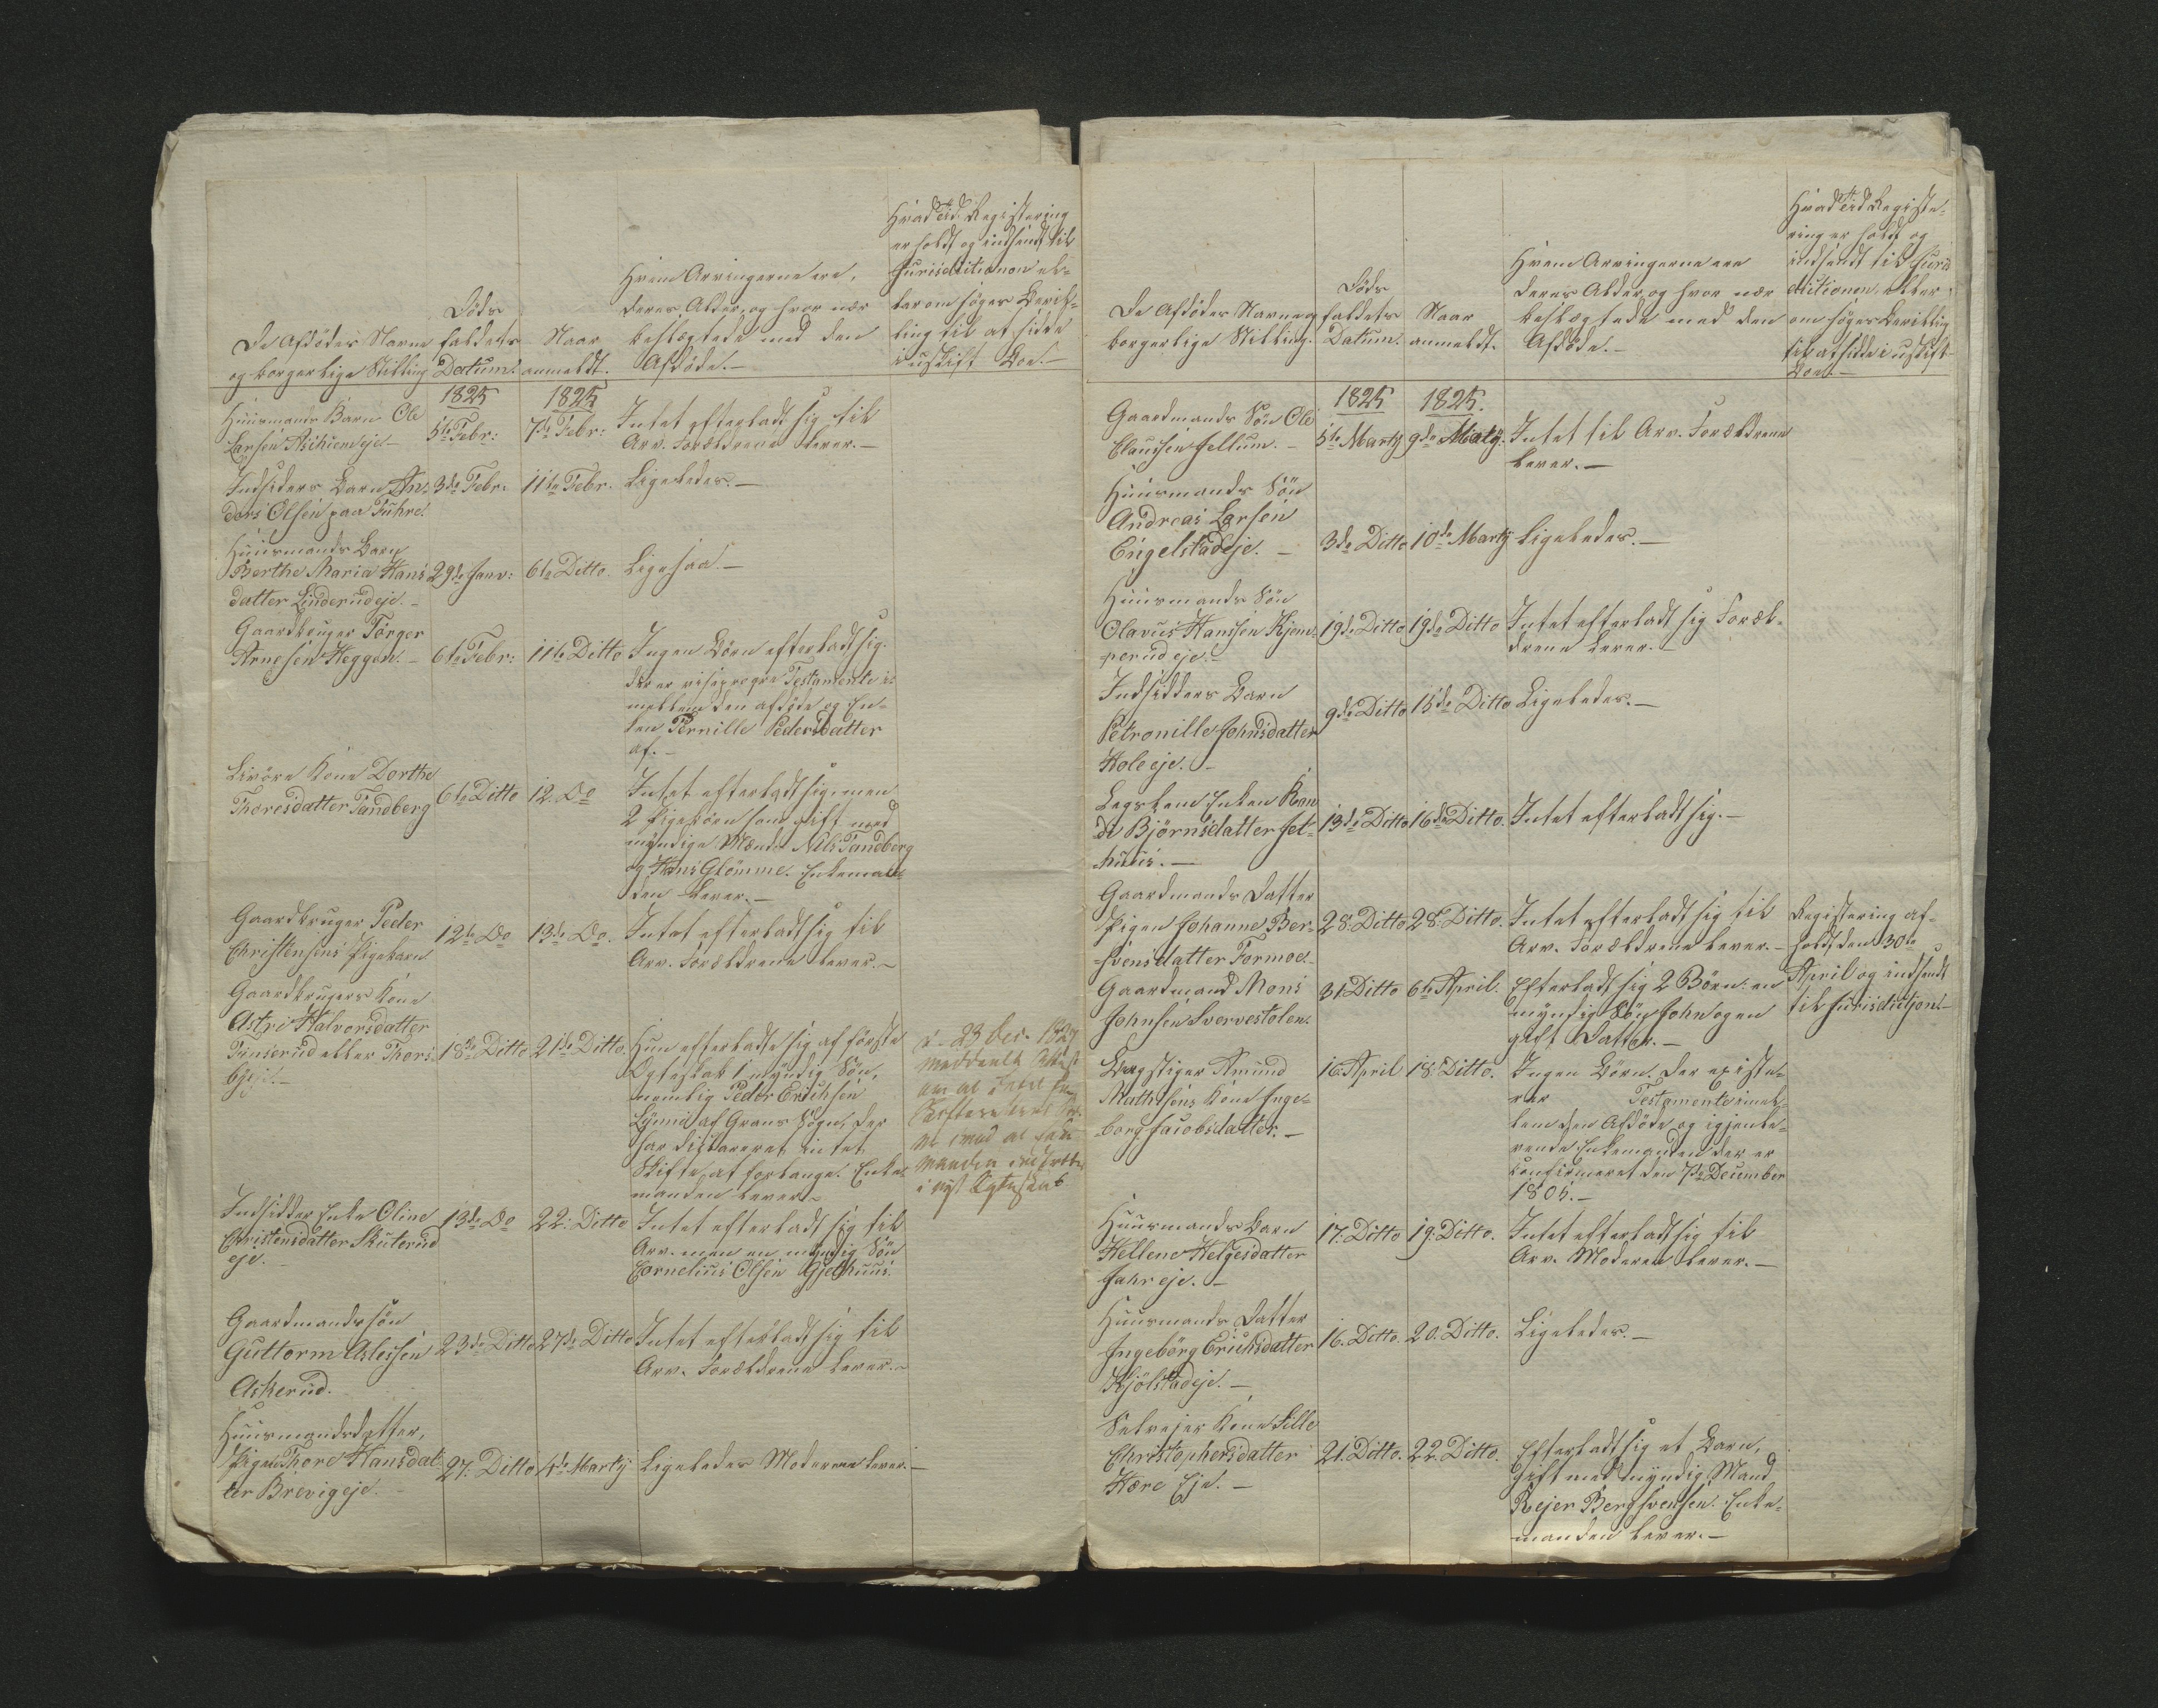 De Afdödes Navne
og borgerlige Stilling
Döds
faldets
Datum.
Naar
anmeldt.
Hvem Arvingerne ere,
deres Alder, og hvor nær
beslægtede med den
Afdöde.-
Hvad Tid Registering
er holdt og indsendt til
Jurisdictionen el-
ler om söges Bevil-
ling til at sidde
i uskift Boe.-
1825
1825
Huusmands Barn Ole
Larsen Askim eje-
5te Febr:
7de Febr:
Intet efterladt sig til
Arv. Forældrene lever.-
Indsiders Barn An-
ders Olsen paa Fuhre.
3de Febr:
11te Febr.
Ligeledes.-
Huusmands Barn
Berthe Maria Hans
datter Linderud eje.-
29de Janv:
6te Ditto.
Ligesaa.-
Gaardbruger Torger
Arnesen Heggen.-
6te Febr:
11te Ditto
Ingen Börn efterladt sig.
der er reciproque Testamente i-
mellem den afdöde og En-
ken Pernille Pedersdatter
af.-
Kone Dorthe
Thoresdatter Tandberg
6te Ditto
12. Do
Intet efterladt sig, men
2 Pigebörn som gift med
myndige Mænd Nils Tandberg
og Hans Glömme. Enkeman-
den lever.-
Gaardbruger Peder
Christensens Pigebarn
12te Do
13de Do.
Intet efterladt sig til
Arv. Forældrene lever.-
Gaardbrugers Kone
Astri Halvorsdatter
Tunserud eller Thors-
bye.-
18de Ditto
21de Ditto.
Hun efterladte sig af förste
Ægteskab 1 myndig Sön,
nemlig Peder Erichsen
Lynne af Grans Sogn, der
har diclareret intet
Skifte at forlange. Enke-
manden lever.-
d. 23 Dec. 1829
meddeelt Attest
om at Intet fra
Skifteretten er
imod at Enke-
manden indtræder
i nyt Ægteskab
Indsidder Enke Oline
Christensdatter Skuterud
eje.-
13de Do
22: Ditto
Intet efterladt sig til
Arv. men en myndig Sön
Cornelius Olsen Gjelhuus.
Gaardmands sön
Guttorm Aslessen
Askerud.
23de Ditto
27de Ditto
Intet efterladt sig til
Arv. Forældrene lever.-
Huusmandsdatter,
Pigen Thore Hansdat-
ter Brevig eje.
27. Ditto
4de Marty
Ligeledes Moderen lever.-
De Afdödes Navne og
borgerlige Stilling.
Döds
faldets
Datum.
Naar
anmeldt.
Hvem Arvingerne ere
deres Alder, og hvor nær
beslægtede med den
Afdöde.-
Hvad Tid Registe-
ring er holdt og
indsendt til Juris
dictionen, eller
om söges Bevilling
til at sidde i uskift
Boe.-
1825
1825.
Gaardmands Sön Ole
Claussen Jellum.-
5te Marty
9de Marty.
Intet til Arv. Forældrene
lever.-
Huusmands Sön
Andreas Larsen
Engelstad eje.-
3de Ditto
10de Marty
Ligeledes.-
Huusmands Sön
Olavus Hanssen Kjem-
perud eje.-
19de Ditto
19de Ditto
Intet efterladt sig Foræl-
drene lever.-
Indsidders Barn
Petronille Johnsdatter
Hole eje.-
9de Ditto
15de Ditto
Ligeledes.-
Lægslem Enken Ran
di Björnsdatter Jel-
huus.-
13de Ditto
16de Ditto.
Intet efterladt sig.-
Gaardmands Datter
Pigen Johanne Ber-
svensdatter Formoe.-
28. Ditto
28. Ditto.
Intet efterladt sig til
Arv. Forældrene lever.-
Registering af-
holdt den 30te
April og indsendt
til Jurisdictjon.-
Gaardmand Mons
Johnsen Svervestolen.
31. Ditto
6te April.
Efterladt sig 2 Börn: en
myndig Sön John og en
gift Datter.-
Bergstiger Amund
Mathisens Kone Inge-
borg Jacobsdatter.-
16. April
18. Ditto.
Ingen Börn. Der existe-
rer Testamente imel-
lem den Afdöde og igjenle-
vende Enkemanden der er
confirmeret den 7de December
1805.-
Huusmands Barn
Hellene Helgesdatter
Jahr eje.-
17. Ditto
19. Ditto.
Intet efterladt sig til
Arv. Moderen lever.-
Huusmands Datter
Ingeborg Erichsdatter
Kjölstad eje.-
16. Ditto.
20. Ditto.
Ligeledes.-
Selvejer Kone Sille
Christophersdatter
Hære Eje.-
21. Ditto.
22. Ditto.
Efterladt sig et Barn,
gift med myndig Mand
Rejer Bergsvensen. Enke-
manden lever.-